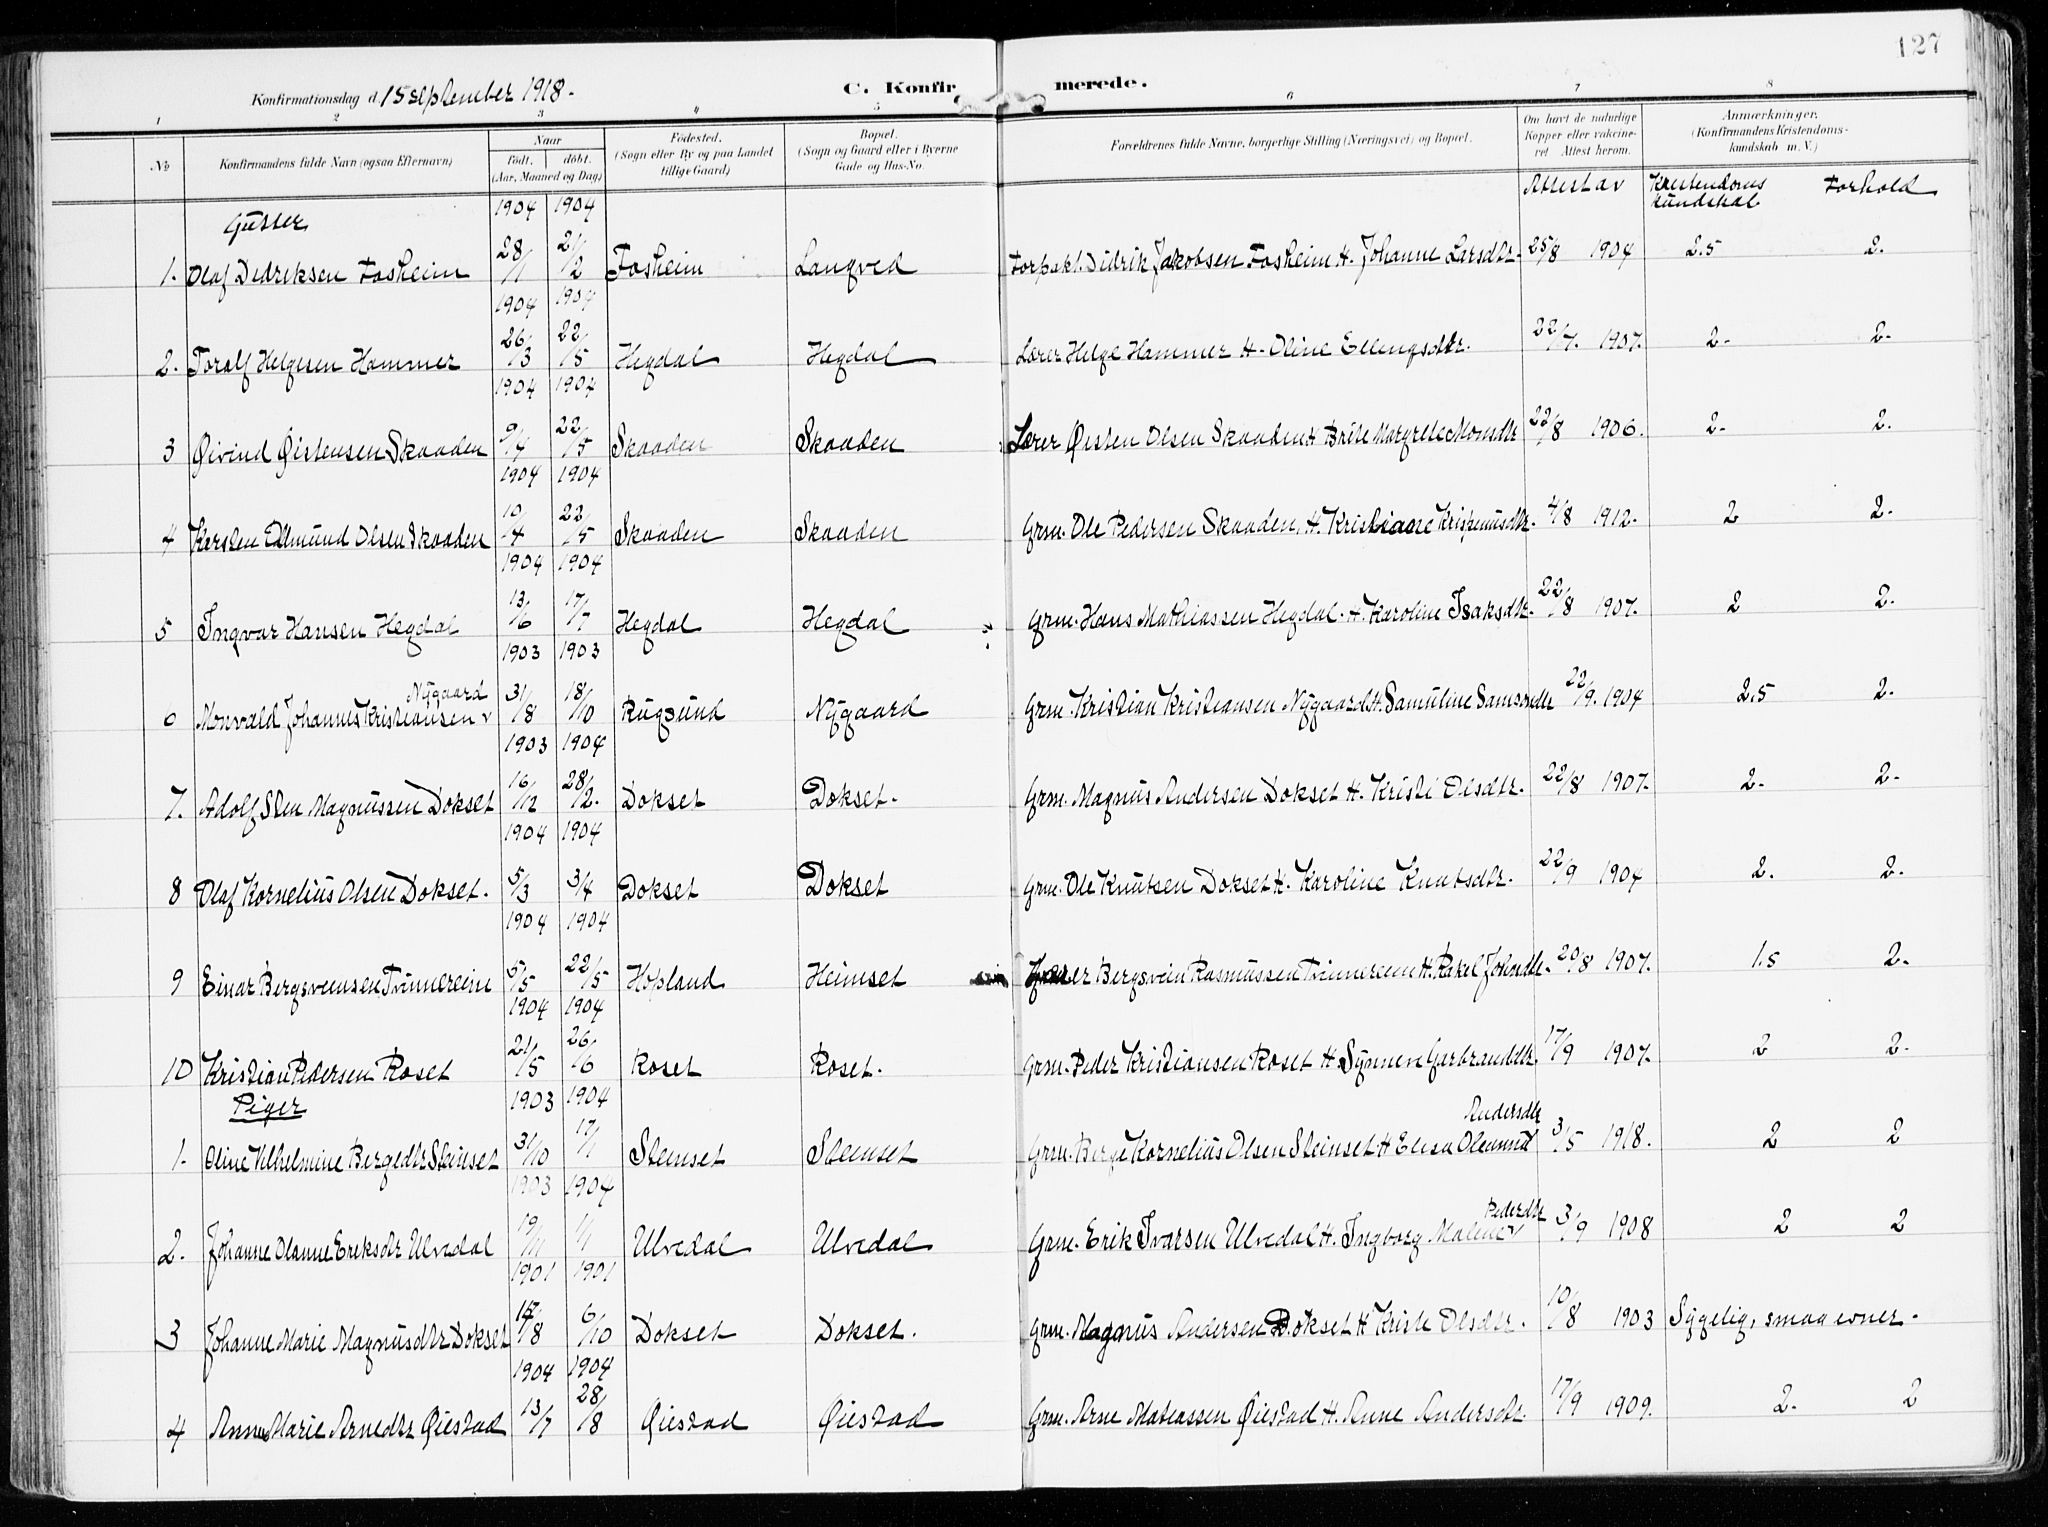 127
Konfirmationsdag d. 15 september 1918.
C. Konfirmerede.
1 2 3 4 5 6 7 8
No
Konfirmandens fulde Navn (ogsaa Efternavn)
Naar
Født. døbt.
(Aar, Maaned og Dag)
Fødested.
(Sogn eller By og paa Landet tillige Gaard)
Bopæl.
(Sogn og Gaard eller i Byerne Gade og Hus-No.
Forældrenes fulde Navne, borgerlige Stilling (Næringsvei) og Bopæl.
Om havt de naturlige Kopper eller vakcineret Attest herom.
Anmærkninger.
(Konfirmandens Kristendomskundskab m.V.)
Attest av Kristendoms kundskab Forhold
Gutter
1904 1904
1. Olaf Didriksen Fosheim 28/1 21/2 Fosheim Langved Forpakt. Didrik Jakobsen Fosheim H. Johanne Larsdtr. 25/8 1904 2.5 2.
1904 1904
2. Toralf Helgesen Hammer 26/3 22/5 Hegdal Hegdal Lærer Helge Hammer H. Oline Ellingsdtr. 22/7. 1907. 2- 2-
1904 1904
3 Øivind Øistensen Skaaden 9/4 22/5 Skaaden Skaaden Lærer Øisten Olsen Skaaden H Brite Margrete Monsdtr 22/8 1906. 2- 2.
1904 1904
4 Karsten Edmund Olsen Skaaden 10/4 22/5 Skaaden Skaaden Grm. Ole Pedersen Skaaden, H. Kristiane Kristensdtr. 4/8 1912. 2 2.
1904 1904
5 Ingvar Hansen Hegdal 13/6 17/7 Hegdal Hegdal Grm. Hans Mathiassen Hegdal. H. Karoline Isaksdtr. 22/8 1907. 2 2.
1903 1903
6 Monvald Johannes Kristiansen Nygaard 31/8 18/10 Rugsund Nygaard Grm. Kristian Kristiansen Nygaard H. Samuline Samsondtr 22/9. 1904 2.5 2.
1903 1904
7. Adolf Sten Magnussen Dokset 16/12 28/2. Dokset Dokset. Grm. Magnus Andersen Dokset H. Kristi Olsdtr. 22/8 1907. 2- 2-
1904 1904
8 Olaf Kornelius Olsen Dokset. 5/3 3/4 Dokset Dokset Grm. Ole Knutsen Dokset H. Karoline Knutsdtr. 22/9 1904 2. 2.
1904 1904
9 Einar Bergsveinsen Tvinnereim 5/5 22/5 Hopland Heimset Lærer Bergsvein Rasmussen Tvinnereim H. Rakel Johndtr. 20/8 1907. 1.5 2.
1904 1904
10 Kristian Pedersen Roset 21/5 26/6 Roset Roset. Grm. Peder Kristiansen Roset H. Synneve Garbranddtr. 17/9 1907. 2 2.
Piger
1903 1904
1. Oline Vilhelmine Bergedtr Steinset 31/10 17/1 Steinset Steinset Grm. Berge Kornelius Olsen Steinset H Elisa Oleanna Andersdtr 3/5 1918. 2 2
1903 1904
2. Johanne Olanne Eriksdtr Ulvedal 19/11 1/1 Ulvedal Ulvedal Grm. Erik Ivarsen Ulvedal H. Ingborg Malene Pedersdtr 3/9 1908 2 2
1901 1901
3 Johanne Marie Magnusdtr Dokset /8 6/10 Dokset Dokset. Grm. Magnus Andersen Dokset H Kristi Olsdtr. 10/8 1903 Sygelig, smaa evner.
1904 1904
4 Anna Marie Arnedtr Øiestad 13/7 28/8 Øiestad Øiestad Grm. Arne Matiassen Øiestad H. Anne Andersdtr. 17/9 1909. 2. 2